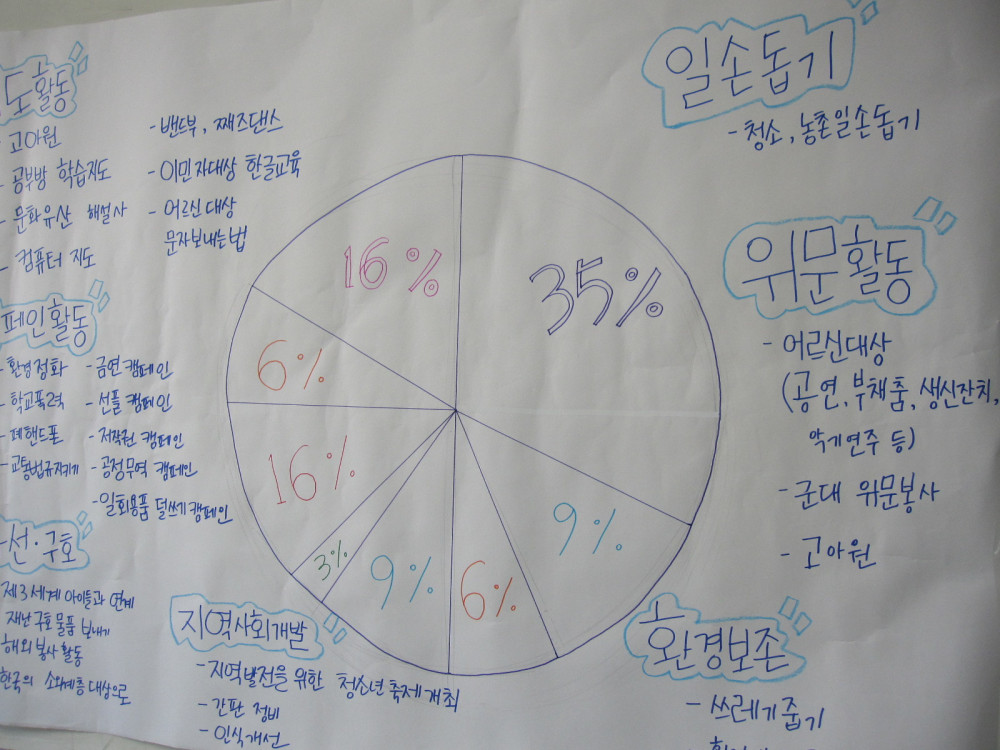 도활동
- 고아원
- 공부방 학습지도
- 문화유산 해설사
- 컴퓨터 지도
- 밴드부, 째즈댄스
- 이민자대상 한글교육
- 어르신 대상
문자보내는법
페인활동
- 환경정화
- 학교폭력
- 폐핸드폰
- 교통법규지키기
- 금연 캠페인
- 선플 캠페인
- 저작권 캠페인
- 공정무역 캠페인
- 일회용품 덜쓰기 캠페인
선·구호
제3세계 아이들과 연계
재난구호물품 보내기
해외봉사 활동
한국의 소외계층 대상으로
16%
35%
6%
16%
3%
9%
6%
9%
지역사회개발
- 지역발전을 위한 청소년축제개최
- 간판 정비
- 인식개선
일손돕기
- 청소, 농촌일손돕기
위문활동
- 어르신대상
(공연, 부채춤, 생신잔치,
악기연주 등)
- 군대 위문봉사
- 고아원
환경보존
- 쓰레기줍기